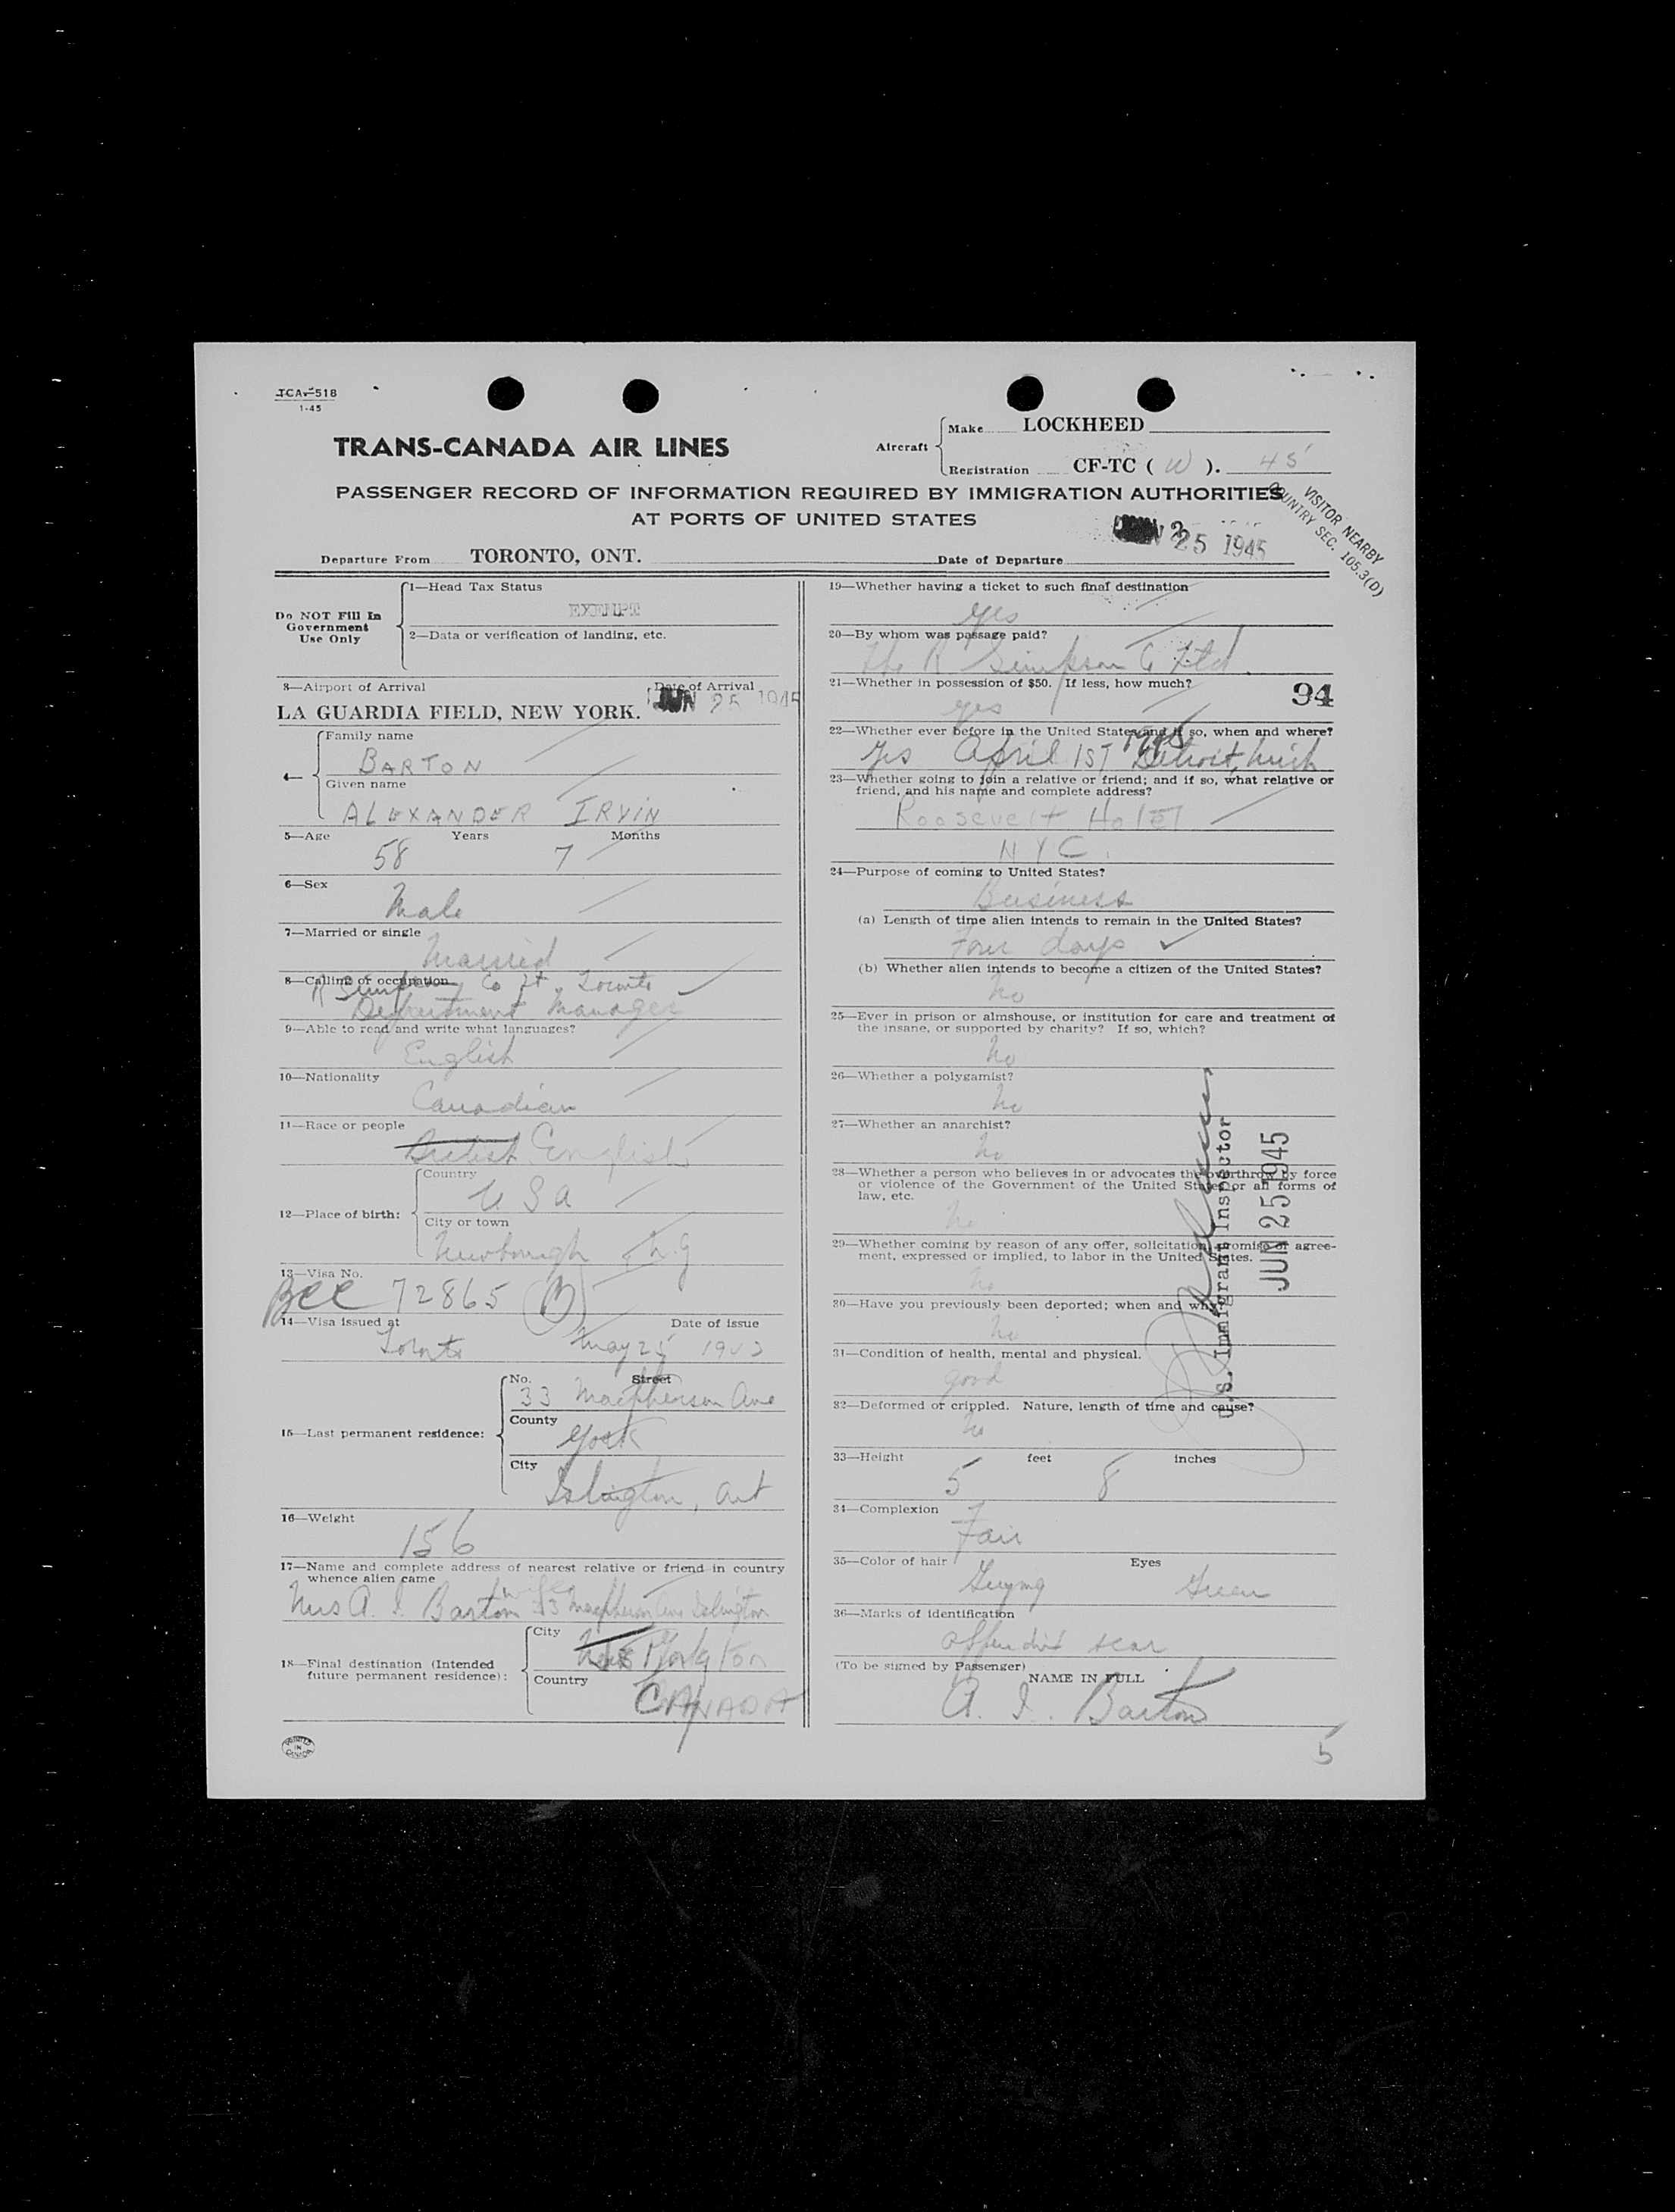 TCA-518
1-45
TRANS-CANADA AIR LINES
Aircraft
Make LOCKHEED
Registration CF-TC ( W ). 45
PASSENGER RECORD OF INFORMATION REQUIRED BY IMMIGRATION AUTHORITIES
AT PORTS OF UNITED STATES
VISITOR NEARBY
COUNTRY SEC. 105.3(D)
Departure From TORONTO, ONT. Date of Departure 25 1945
Do NOT Fill In
Government
Use Only
1—Head Tax Status
EXEMPT
2—Data or verification of landing, etc.
3—Airport of Arrival Date of Arrival
LA GUARDIA FIELD, NEW YORK. JUN 25 1945
4—
Family name
BARTON
Given name
ALEXANDER IRVIN
5—Age Years Months
58 7
6—Sex
Male
7—Married or single
Married
8—Calling or occupation
R Simpson Co Lt. Toronto
Department Manager
9—Able to read and write what languages?
English
10—Nationality
Canadian
11—Race or people
British English
12—Place of birth:
Country
U S A
City or town
Newburgh N.Y
13—Visa No.
BCC 72865
14—Visa issued at Date of issue
Toronto May 25
15—Last permanent residence:
No. Street
33 Macpherson Ave
County
York
City
Islington, Ont
16—Weight
156
17—Name and complete address of nearest relative or friend in country
whence alien came
wife
Mrs A. I. Barton 33 Macpherson Ave Islington
18—Final destination (Intended
future permanent residence):
City
Country
CANADA
PRINTED
IN
CANADA
19—Whether having a ticket to such final destination
yes
20—By whom was passage paid?
The R Simpson Co Ltd
21—Whether in possession of $50. If less, how much?
yes
94
22—Whether ever before in the United States and if so, when and where?
yes April 1ST 1945 Detroit, Mich
23—Whether going to join a relative or friend; and if so, what relative or
friend, and his name and complete address?
Roosevelt Hotel
NYC.
24—Purpose of coming to United States?
Business
(a) Length of time alien intends to remain in the United States?
Four days
(b) Whether alien intends to become a citizen of the United States?
No
25—Ever in prison or almshouse, or institution for care and treatment of
the insane, or supported by charity? If so, which?
No
26—Whether a polygamist?
No
27—Whether an anarchist?
No
28—Whether a person who believes in or advocates the overthrow by force
or violence of the Government of the United States or all forms of
law, etc.
No
29—Whether coming by reason of any offer, solicitation, promise or agree-
ment, expressed or implied, to labor in the United States.
No
30—Have you previously been deported; when and why?
No
31—Condition of health, mental and physical.
good
32—Deformed or crippled. Nature, length of time and cause?
No
U.S. Immigrant Inspector
JUN 25 1945
33—Height feet inches
5 8
34—Complexion
Fair
35—Color of hair Eyes
Green
36—Marks of identification
scar
(To be signed by Passenger)
NAME IN FULL
A. I. Barton
5